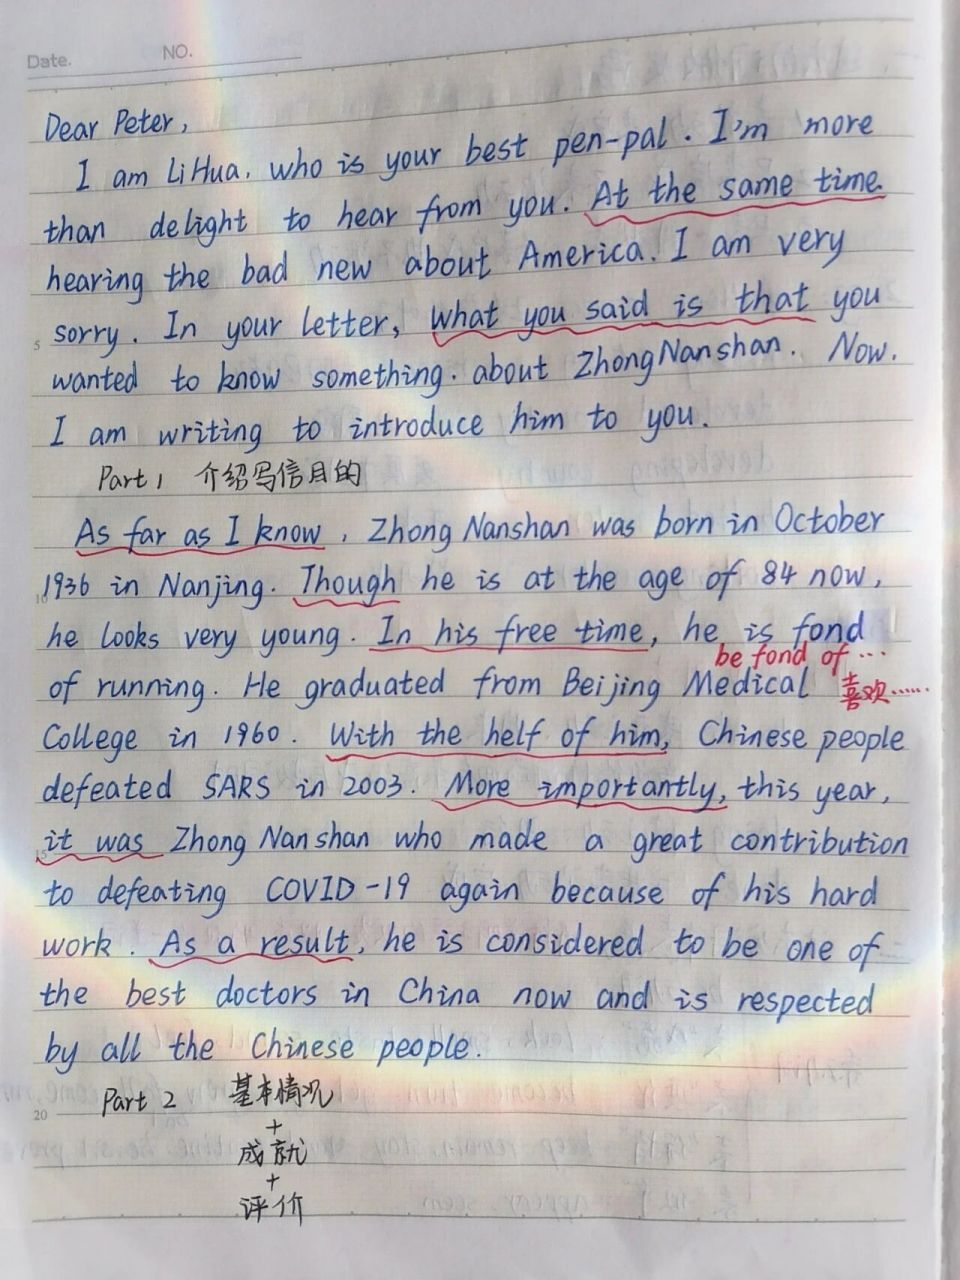 Date.
NO.
Dear Peter,
I am Li Hua, who is your best pen-pal. I'm more
than delight to hear from you. At the same time.
hearing the bad new about America. I am very
5 sorry. In your letter, what you said is that you
wanted to know something. about Zhong Nanshan. Now.
I am writing to introduce him to you.
Part 1 介绍写信目的
As far as I know, Zhong Nanshan was born in October
10 1936 in Nanjing. Though he is at the age of 84 now,
he looks very young. In his free time, he is fond
be fond of ...
of running. He graduated from Beijing Medical 喜欢......
College in 1960. With the helf of him, Chinese people
defeated SARS in 2003. More importantly, this year,
15 it was Zhong Nanshan who made a great contribution
to defeating COVID-19 again because of his hard
work. As a result, he is considered to be one of
the best doctors in China now and is respected
by all the Chinese people.
20 Part 2 基本情况
+
成就
+
评价